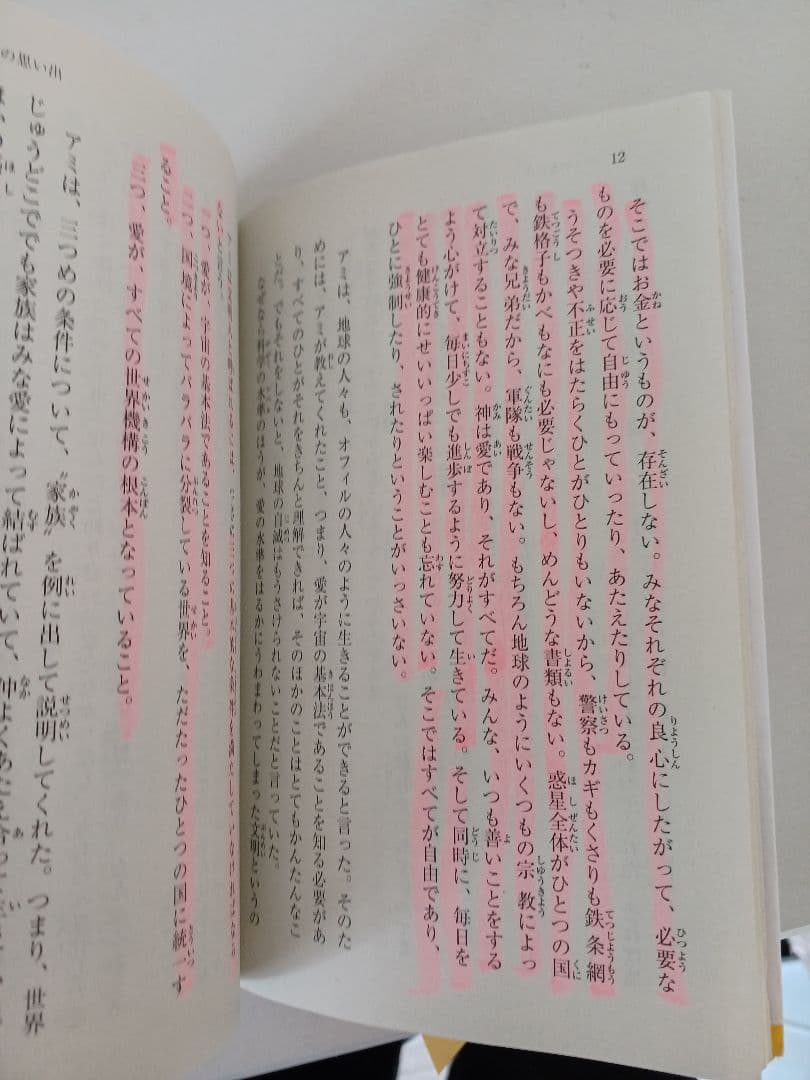 12
そこではお金というものが、存在しない。みなそれぞれの良心にしたがって、必要な
ものを必要に応じて自由にもっていったり、あたえたりしている。
うそつきや不正をはたらくひとがひとりもいないから、警察もカギもくさりも鉄条網
も鉄格子もかべもなにも必要じゃないし、めんどうな書類もない。惑星全体がひとつの国
で、みな兄弟だから、軍隊も戦争もない。もちろん地球のようにいくつもの宗教によっ
て対立することもない。神は愛であり、それがすべてだ。みんな、いつも善いことをする
よう心がけて、毎日少しでも進歩するように努力して生きている。そして同時に、毎日を
とても健康的にせいいっぱい楽しむことも忘れていない。そこではすべてが自由であり、
ひとに強制したり、されたりということがいっさいない。
アミは、地球の人々も、オフィルの人々のように生きることができると言った。そのた
めには、アミが教えてくれたこと、つまり、愛が宇宙の基本法であることを知る必要があ
り、すべてのひとがそれをきちんと理解できれば、そのほかのことはとてもかんたんなこ
とだ。でもそれをしないと、地球の自滅はもうさけられないことだと言っていた。
なぜなら科学の水準のほうが、愛の水準をはるかにうわまわってしまった文明というの
の思い出
一つ、愛が、宇宙の基本法であることを知ること。
二つ、国境によってバラバラに分裂している世界を、ただたったひとつの国に統一す
ること。
三つ、愛が、すべての世界機構の根本となっていること。
アミは、三つめの条件について、〝家族〟を例に出して説明してくれた。つまり、世界
じゅうどこででも家族はみな愛によって結ばれていて、仲よくあたえ合って